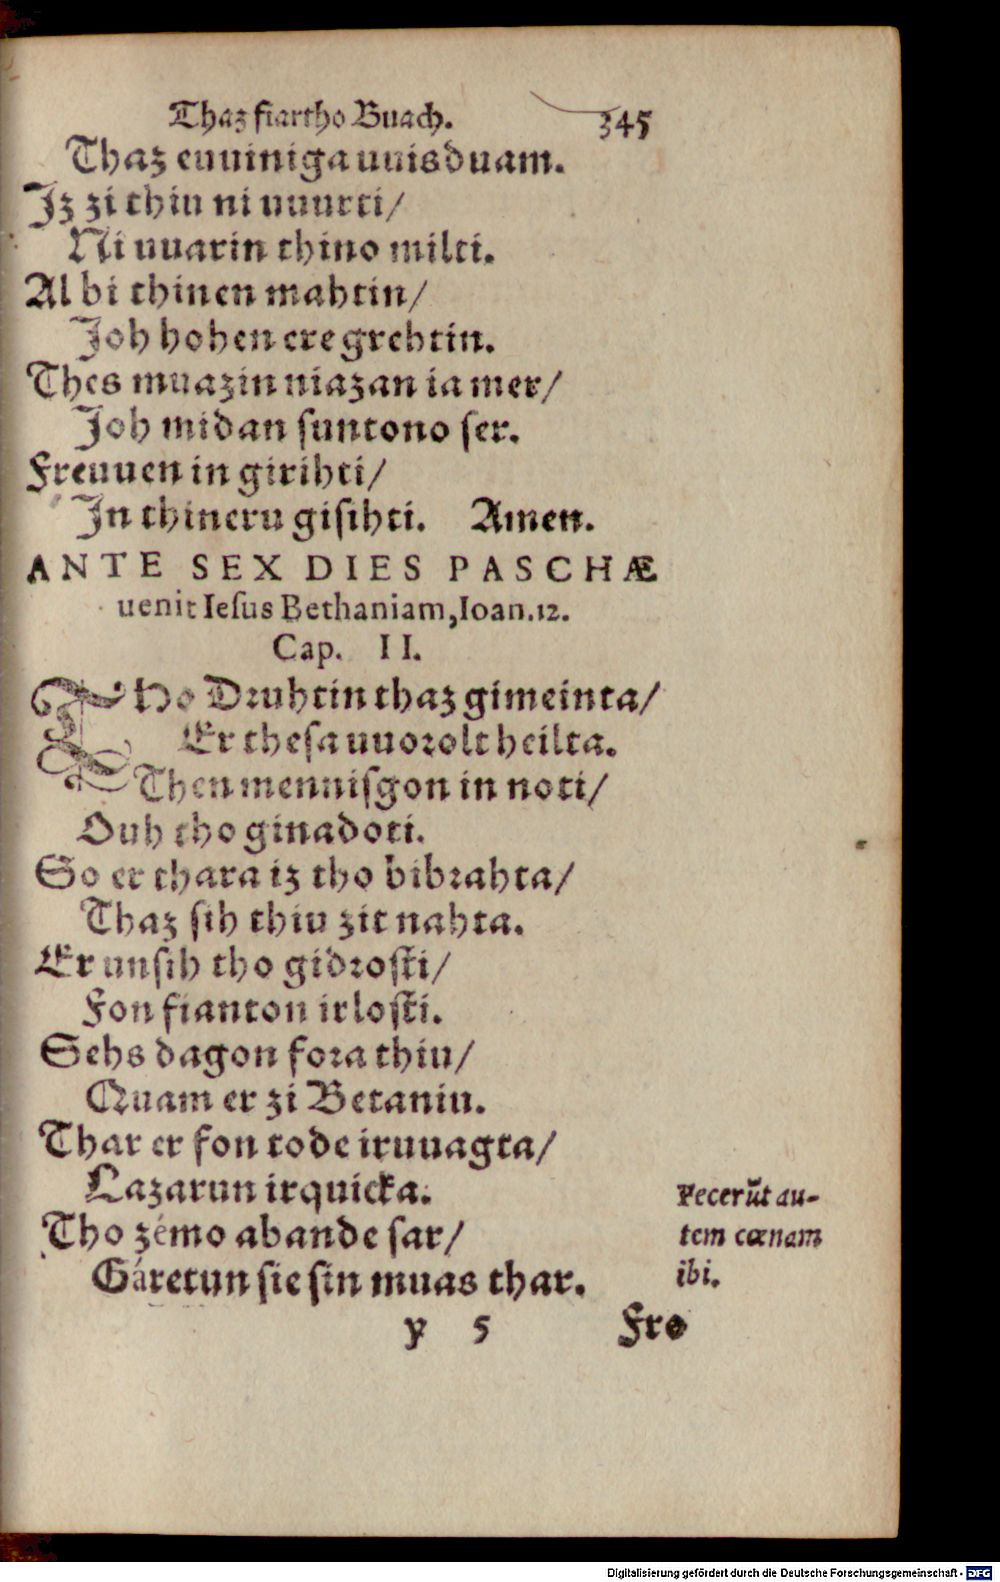 Thaz fiartho Buach. 345
Thaz euuiniga uuisduam.
Iz zi thiu ni uuurti/
Ni uuarin thino milti.
Al bi thinen mahtin/
Joh hohen ere grehtin.
Thes muazin niazan ia mer/
Joh midan suntono ser.
Freuuen in girihti/
In thineru gisihti. Amen.
ANTE SEX DIES PASCHÆ
uenit Iesus Bethaniam, Ioan. 12.
Cap. II.
THo Druhtin thaz gimeinta/
Er thesa uuorolt heilta.
Then mennisgon in noti/
Ouh tho ginadoti.
So er thara iz tho bibrahta/
Thaz sih thiu zit nahta.
Er unsih tho gidrosti/
Fon fianton irlosti.
Sehs dagon fora thiu/
Quam er zi Betaniu.
Thar er fon tode iruuagta/
Lazarun irquicka.
Tho zémo abande sar/
Gáretun sie sin muas thar.
Fecerũt au-
tem cœnam
ibi.
y 5 Fro
Digitalisierung gefördert durch die Deutsche Forschungsgemeinschaft - DFG